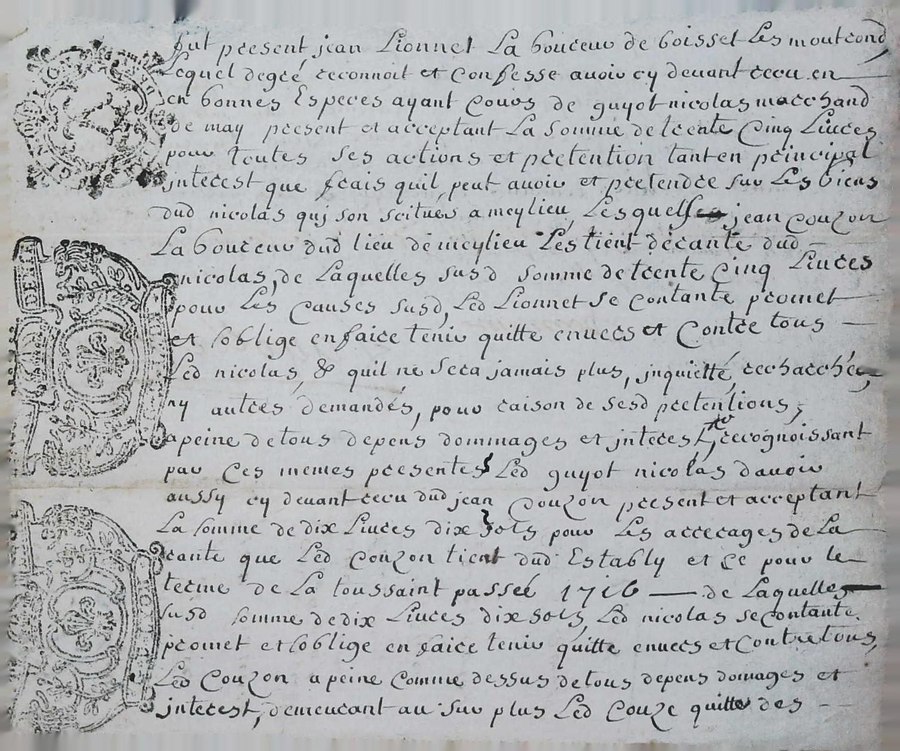 fut present jean Lionnet La boureur de boisset Les montrond
Lequel degré reconnoit et Confesse avoir cy devant receu en
en bonnes Especes ayant Cours de guyot nicolas marchand
de may present et acceptant La somme de trente Cinq Livres
pour toutes ses actions et pretention tant en principal
jnterest que frais quil peut avoir et pretendre sur Les biens
dud nicolas quj son scitués a meylieu Lesquels jean Couzon
La boureur dud lieu de meylieu Les tient de rante dud
nicolas, de Laquelles susd somme de trente Cinq Livres
pour Les Causes susd, Led Lionnet se contante promet
et soblige en faire tenir quitte envers et Contre tous
Led nicolas, & quil ne sera jamais plus, jnquietté, recharché,
ny autres demandés, pour raison de sesd pretentions,
a peine de tous depens dommages et jnteres recognoissant
par Ces memes presentes Led guyot nicolas davoir
aussy cy devant receu dud jean Couzon present et acceptant
La somme de dix Livres dix sols pour Les arrerages de La
rante que Led Couzon tient dud Estably et Ce pour le
terme de La toussaint passée 1716 de Laquelles
susd somme de dix Livres dix sols, Led nicolas se contante
promet et soblige en faire tenir quitte envers et Contre tous,
Led Couzon a peine Comme dessus de tous depens domages et
jnterest, demeurant au sur plus Led Couze quitte des